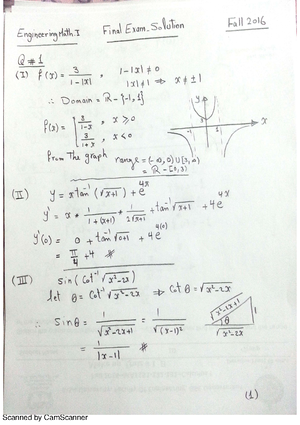 Engineering Math. I Final Exam. Solution Fall 2016
Q # 1
(I) f(x) = 3/(1-|x|) , 1-|x| ≠ 0
|x| ≠ 1 ⟹ x ≠ ±1
∴ Domain = R - {-1, 1}
f(x) = { 3/(1-x) , x ≥ 0
3/(1+x) , x < 0
From the graph range = (-∞, 0) ∪ [3, ∞)
= R - [0, 3)
(II) y = x tan⁻¹(√(x+1)) + e^(4x)
y' = x * 1/(1+(x+1)) * 1/(2√(x+1)) + tan⁻¹√(x+1) + 4e^(4x)
y'(0) = 0 + tan⁻¹√(0+1) + 4e^(4(0))
= π/4 + 4 #
(III) sin(Cot⁻¹ √(x²-2x))
let θ = Cot⁻¹ √(x²-2x) ⟹ Cot θ = √(x²-2x)
∴ Sin θ = 1/√(x²-2x+1) = 1/√((x-1)²)
= 1/|x-1| #
√(x²-2x+1)
1
θ
√(x²-2x)
(1)
Scanned by CamScanner